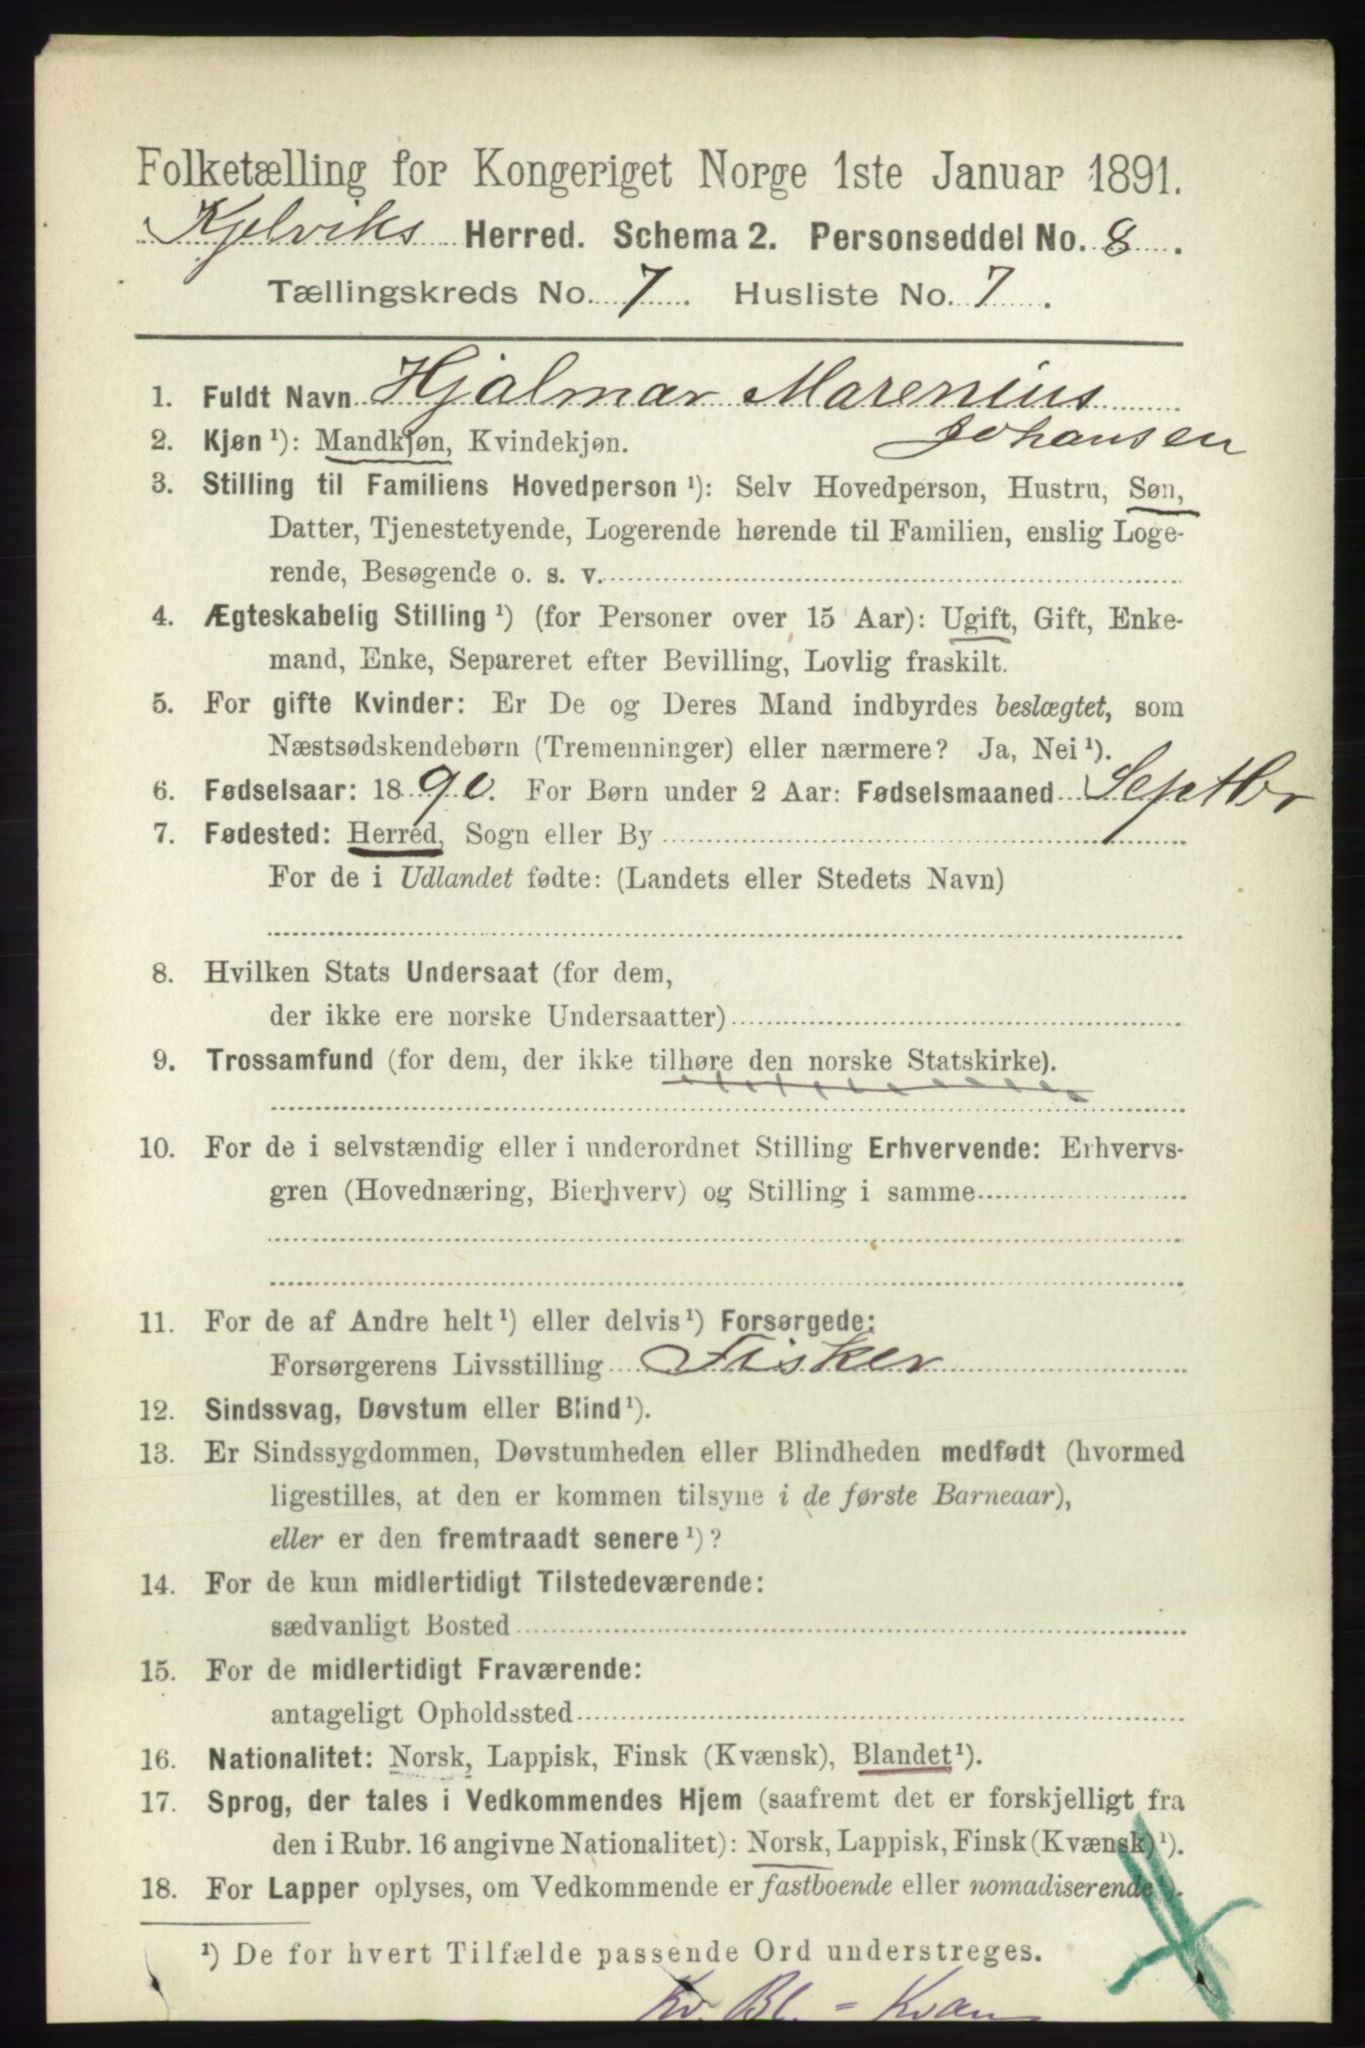 Folketælling for Kongeriget Norge 1ste Januar 1891.
Kjelviks Herred. Schema 2. Personseddel No. 8.
Tællingskreds No. 7. Husliste No. 7.
1. Fuldt Navn Hjalmar Marenius
Johansen
2. Kjøn ¹): Mandkjøn, Kvindekjøn.
3. Stilling til Familiens Hovedperson ¹): Selv Hovedperson, Hustru, Søn,
Datter, Tjenestetyende, Logerende hørende til Familien, enslig Loge-
rende, Besøgende o. s. v.
4. Ægteskabelig Stilling ¹) (for Personer over 15 Aar): Ugift, Gift, Enke-
mand, Enke, Separeret efter Bevilling, Lovlig fraskilt.
5. For gifte Kvinder: Er De og Deres Mand indbyrdes beslægtet, som
Næstsødskendebørn (Tremenninger) eller nærmere? Ja, Nei ¹).
6. Fødselsaar: 1890. For Børn under 2 Aar: Fødselsmaaned Septbr
7. Fødested: Herred, Sogn eller By
For de i Udlandet fødte: (Landets eller Stedets Navn)
8. Hvilken Stats Undersaat (for dem,
der ikke ere norske Undersaatter)
9. Trossamfund (for dem, der ikke tilhøre den norske Statskirke).
10. For de i selvstændig eller i underordnet Stilling Erhvervende: Erhvervs-
gren (Hovednæring, Bierhverv) og Stilling i samme
11. For de af Andre helt ¹) eller delvis ¹) Forsørgede:
Forsørgerens Livsstilling Fisker
12. Sindssvag, Døvstum eller Blind ¹).
13. Er Sindssygdommen, Døvstumheden eller Blindheden medfødt (hvormed
ligestilles, at den er kommen tilsyne i de første Barneaar),
eller er den fremtraadt senere ¹)?
14. For de kun midlertidigt Tilstedeværende:
sædvanligt Bosted
15. For de midlertidigt Fraværende:
antageligt Opholdssted
16. Nationalitet: Norsk, Lappisk, Finsk (Kvænsk), Blandet ¹).
17. Sprog, der tales i Vedkommendes Hjem (saafremt det er forskjelligt fra
den i Rubr. 16 angivne Nationalitet): Norsk, Lappisk, Finsk (Kvænsk) ¹).
18. For Lapper oplyses, om Vedkommende er fastboende eller nomadiserende ¹).
¹) De for hvert Tilfælde passende Ord understreges.
Kv. Bl. = Kvæn